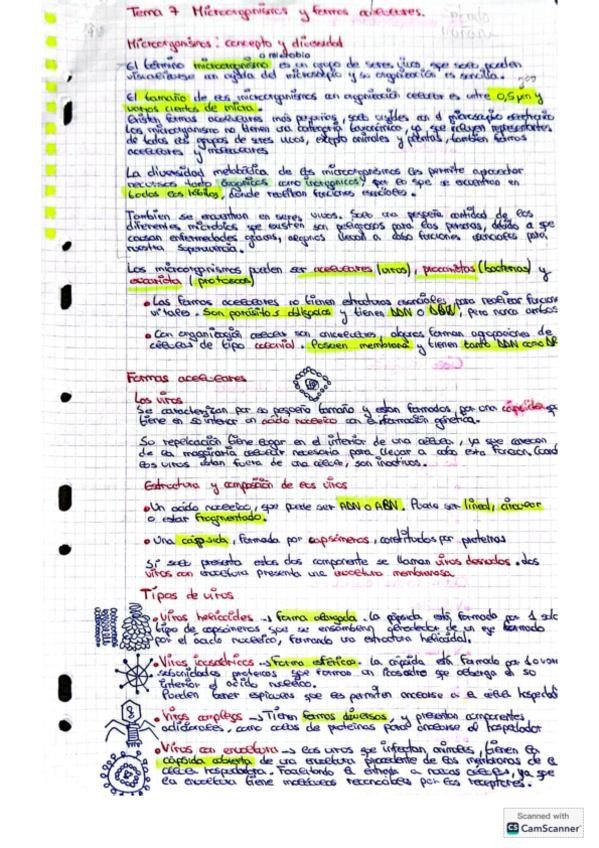 Tema 7 Microorganismos y formas acelulares.
Microorganismos: concepto y diversidad
o microbio
El término microorganismo es un grupo de seres vivos, que solo pueden
visualizarse con ayuda del microscopio y su organización es sencilla.
El tamaño de los microorganismos con organización celular es entre 0,5 μm y
varios cientos de micra.
Existen formas acelulares más pequeñas, solo visibles en el microscopio electrónico
Los microorganismo no tienen una categoría taxonómica, ya que incluyen representantes
de todos los grupos de seres vivos, excepto animales y plantas, también formas
acelulares y moleculares
La diversidad metabólica de los microorganismos les permite aprovechar
recursos tanto orgánicos como inorgánicos, por lo que se encuentran en
todos los hábitats, donde realizan funciones esenciales.
También se encuentran en seres vivos. Solo una pequeña cantidad de los
diferentes microbios que existen son peligrosos para las personas, debido a que
causan enfermedades graves, algunos llevan a cabo funciones esenciales para
nuestra supervivencia.
Los microorganismos pueden ser acelulares (virus), procariotas (bacterias) y
eucariota (protozoos)
• Las formas acelulares no tienen estructuras esenciales para realizar funcion
vitales. Son parásitos obligados y tienen ADN o ARN, pero nunca ambos
• Con organización celular son unicelulares, algunos forman agrupaciones de
células de tipo colonial. Poseen membrana y tienen tanto ADN como
Formas acelulares
Los virus
Se caracterizan por su pequeño tamaño y estan formados, por una cápside q
tiene en su interior un ácido nucleico con información genética.
Su replicación tiene lugar en el interior de una célula, ya que carecen
de la maquinaria celular necesaria para llevar a cabo esta función. Cuand
los virus están fuera de una célula, son inactivos.
Estructura y composición de los virus
• Un ácido nucleico, que puede ser ADN o ARN. Puede ser lineal, circular
o estar fragmentado.
• Una cápsida, formada por capsómeros, constituidos por proteínas
Si solo presenta estos dos componente se llaman virus desnudos. Los
virus con envoltura presenta una envoltura membranosa
Tipos de virus
• Virus helicoides → forma alargada. La cápsida está formada por 1 solo
tipo de capsómeros que se ensamblan alrededor de un eje formado
por el ácido nucleico, formando una estructura helicoidal.
• Virus icosaédricos → forma esférica. La cápsida está formada por 1 o var
subunidades proteicas que forman un icosaedro que alberga en su
interior el ácido nucleico.
Pueden tener espículas que les permiten anclarse a la célula hospedad
• Virus complejos → Tienen formas diversas, y presentan componentes
adicionales, como colas de proteínas para anclarse al hospedador
• Virus con envoltura → los virus que infectan animales, tienen la
cápsida abierta de una envoltura procedente de las membranas de la
célula hospedadora. Facilitando la entrada a nuevas células, ya que
la envoltura tiene moléculas reconocibles por los receptores.
Scanned with
CS CamScanner